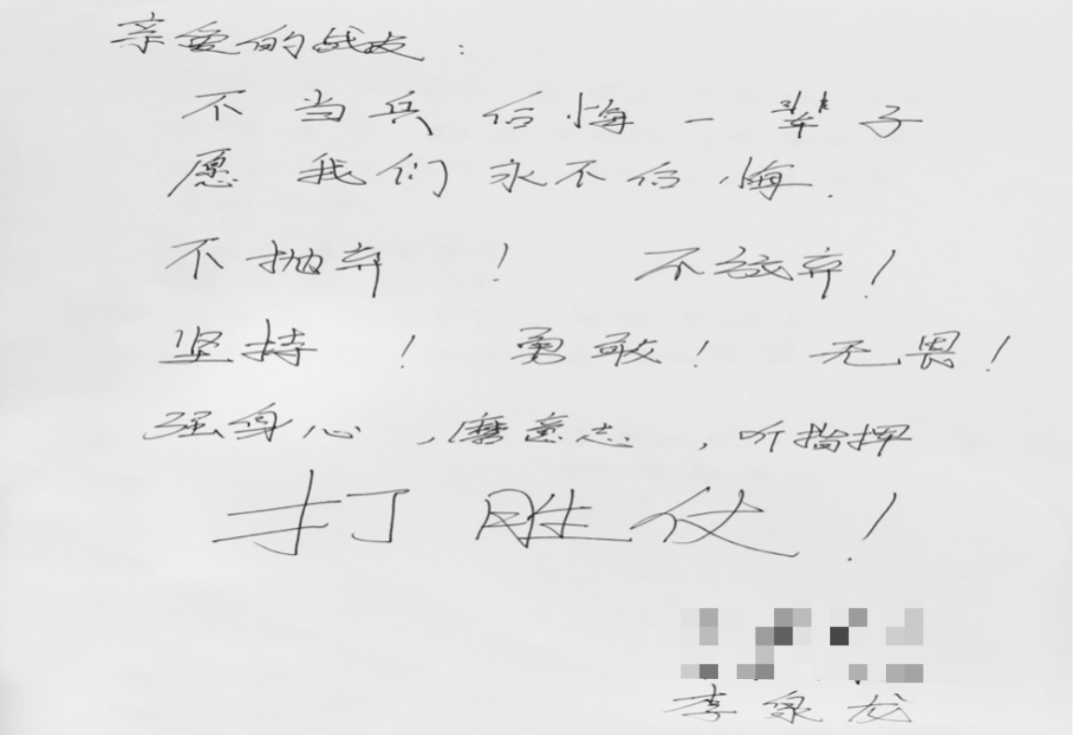 亲爱的战友：
不当兵后悔一辈子
愿我们永不后悔.
不抛弃！ 不放弃！
坚持！ 勇敢！ 无畏！
强身心，磨意志，听指挥
打胜仗！
李泉龙